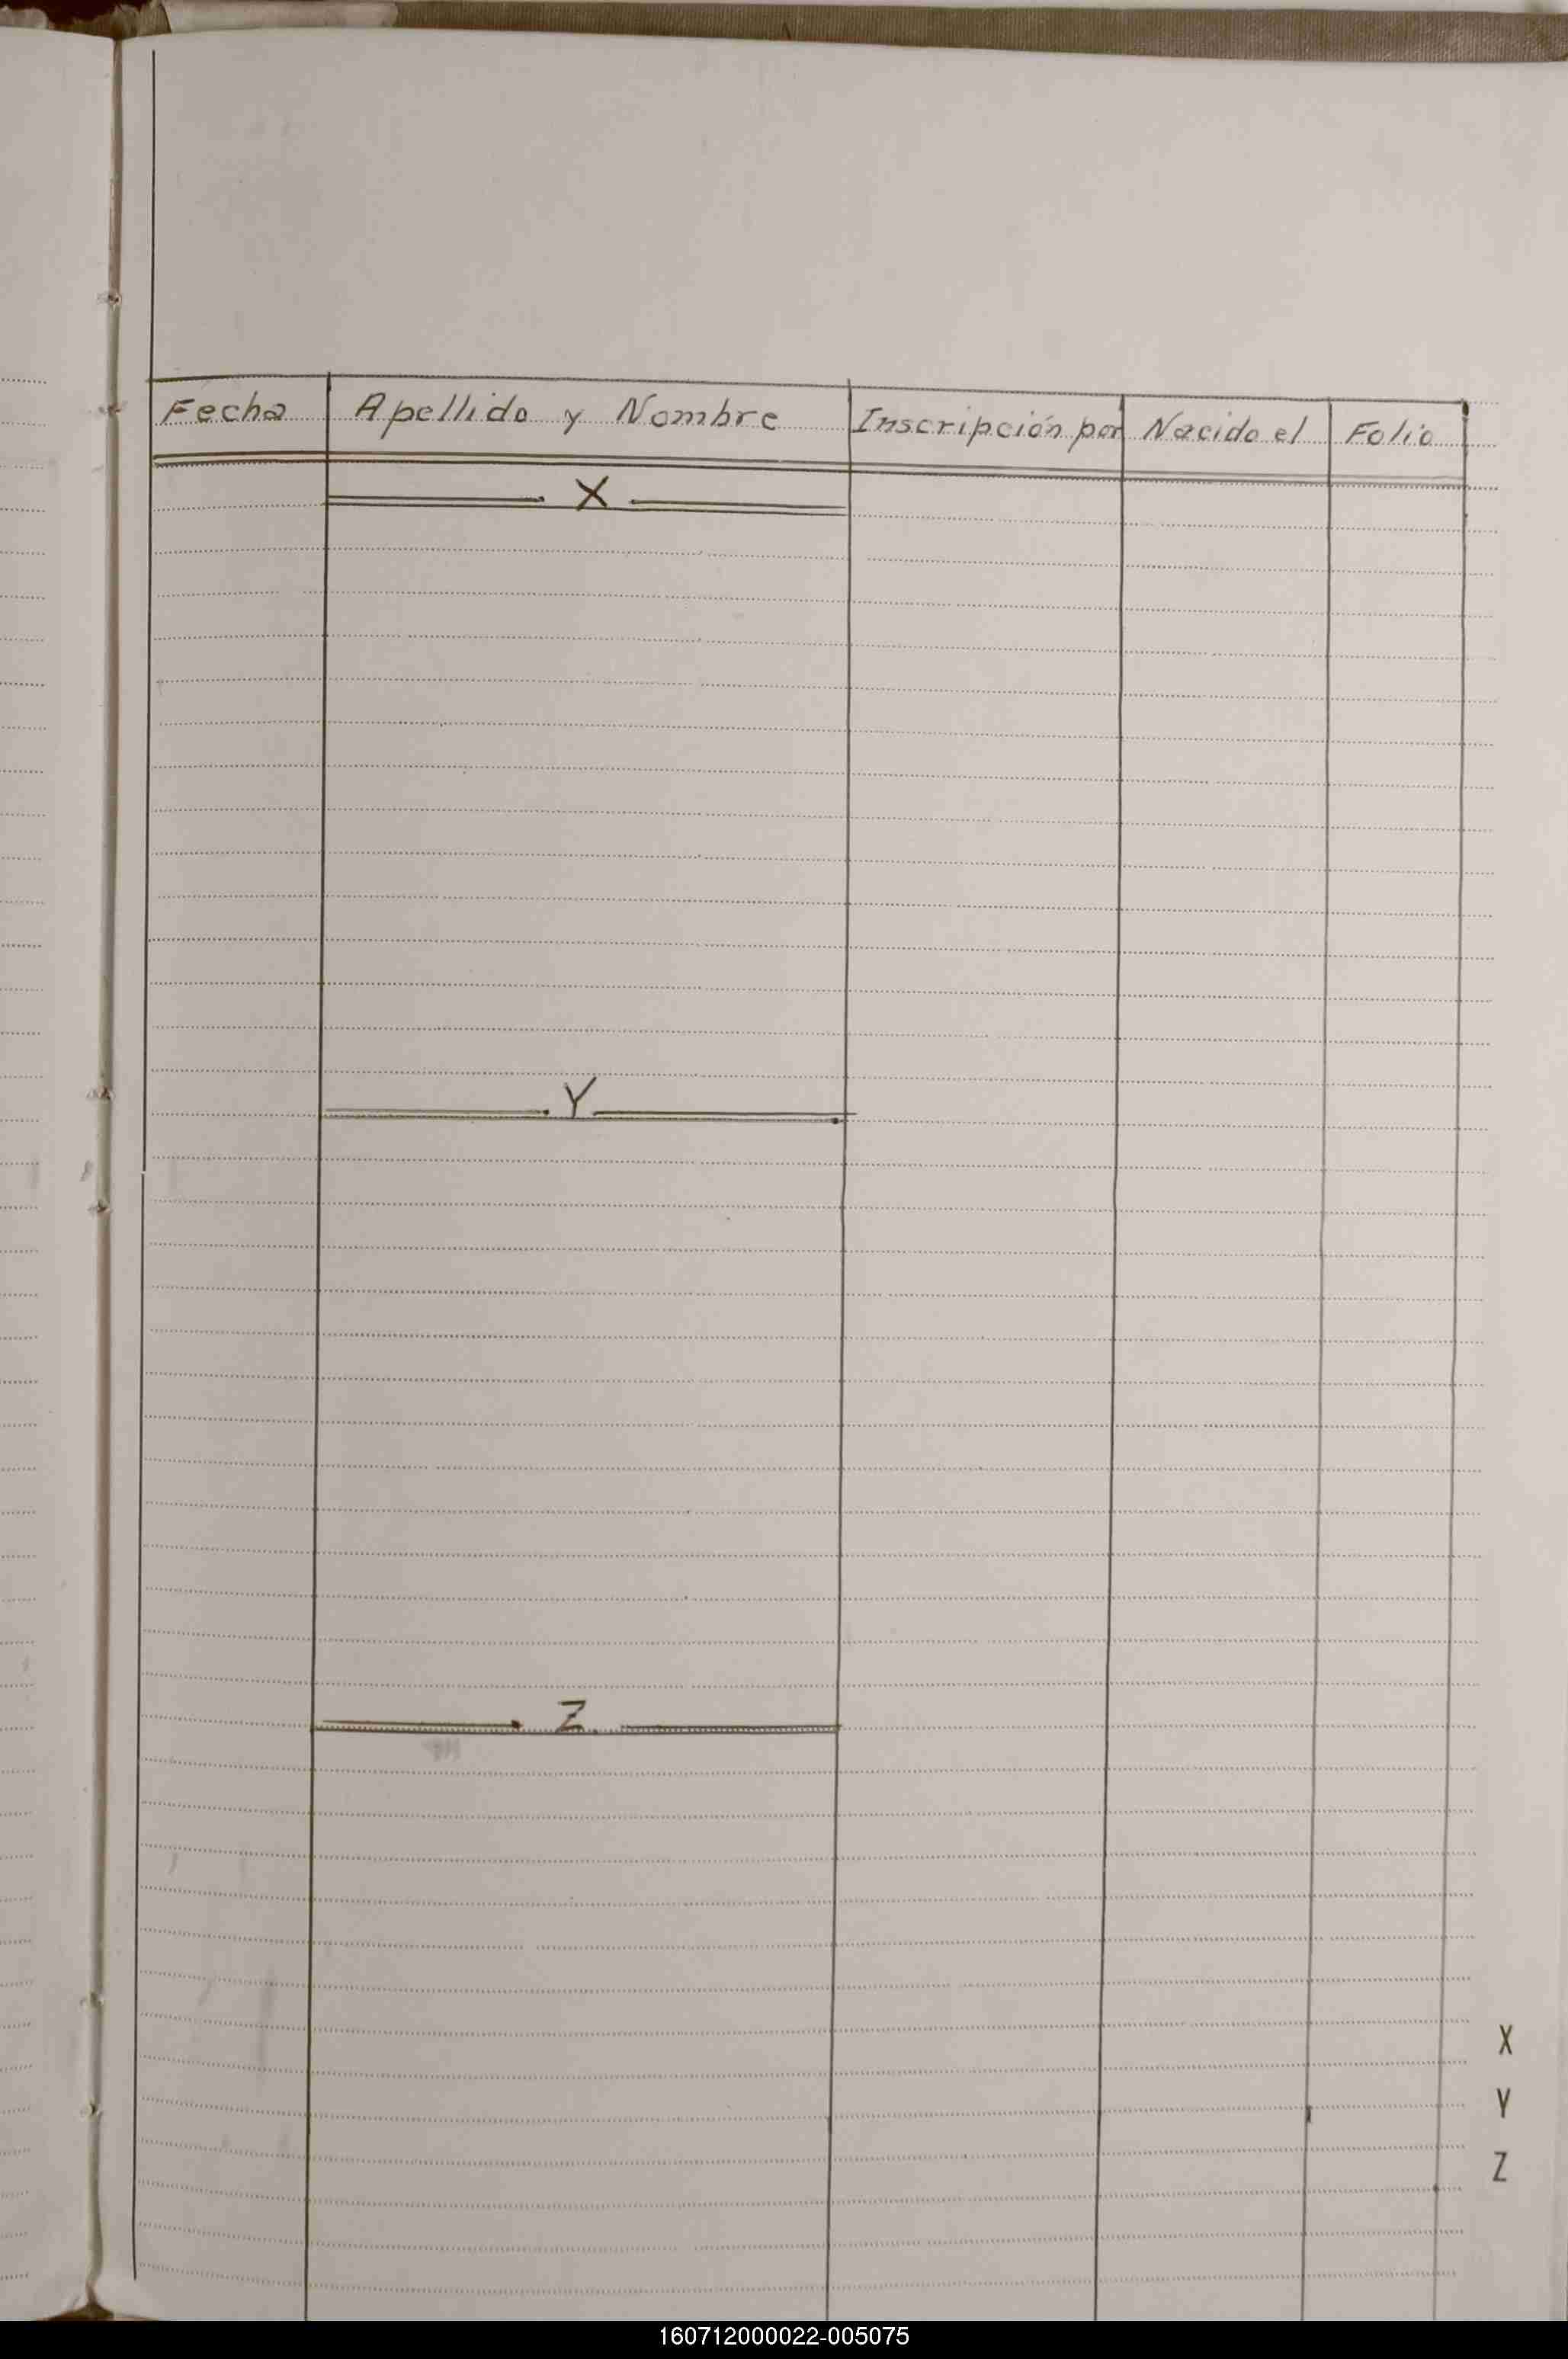 Fecha Apellido y Nombre Inscripción por Nacido el Folio
X
Y
Z
X
Y
Z
160712000022-005075